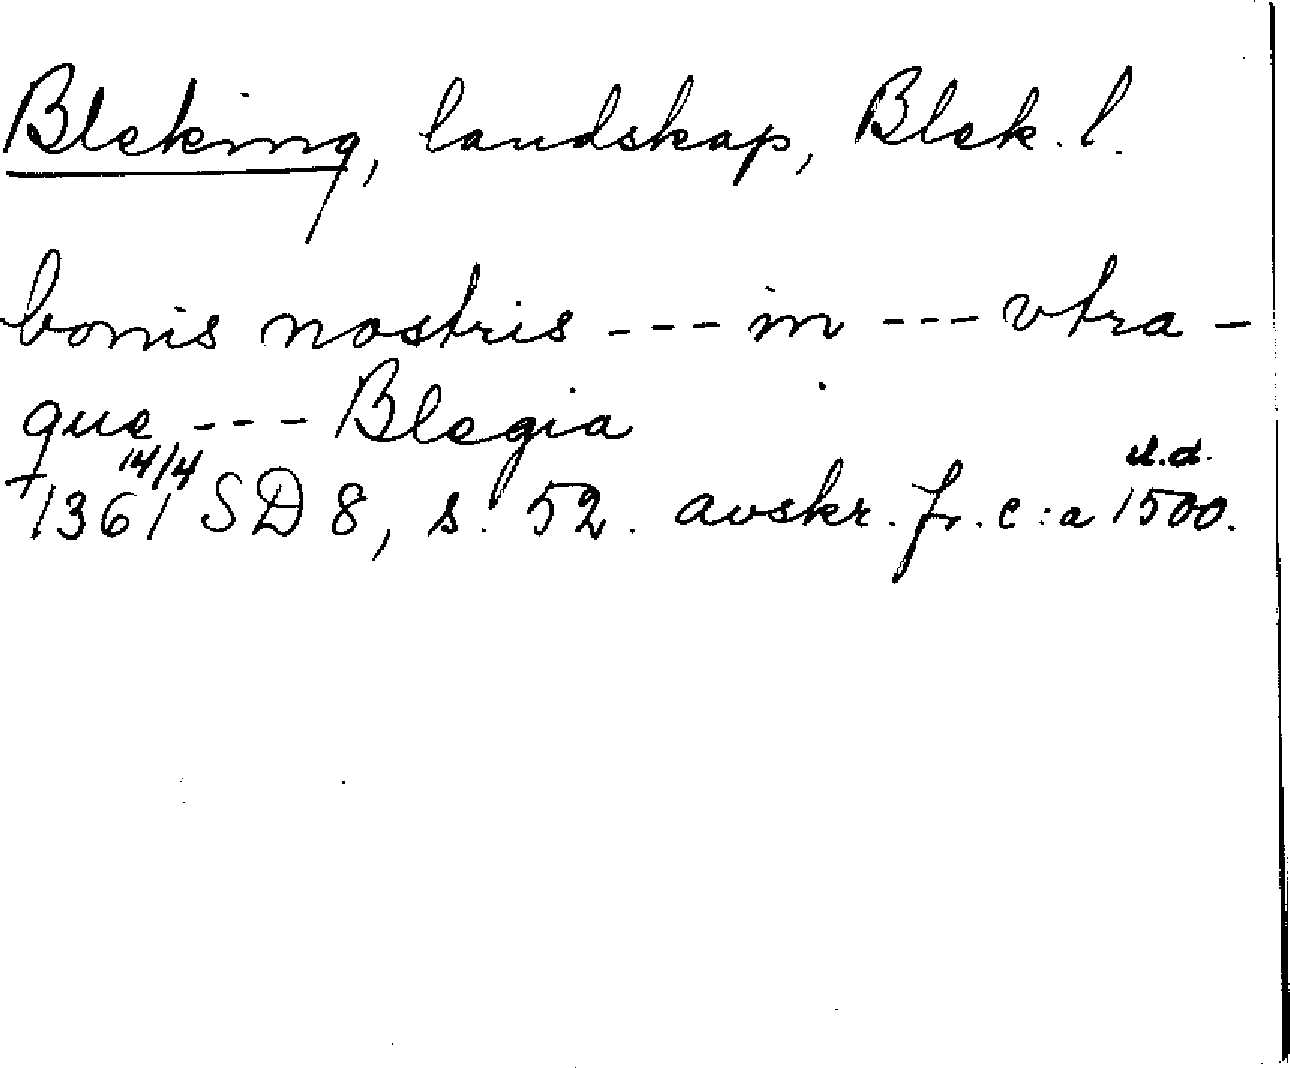 Bleking, landskap, Blek. l.
bonis nostris --- in --- vtra-
que --- Blegia
14/4
+1361 SD 8, s. 52. avskr. fr. c:a 1500.